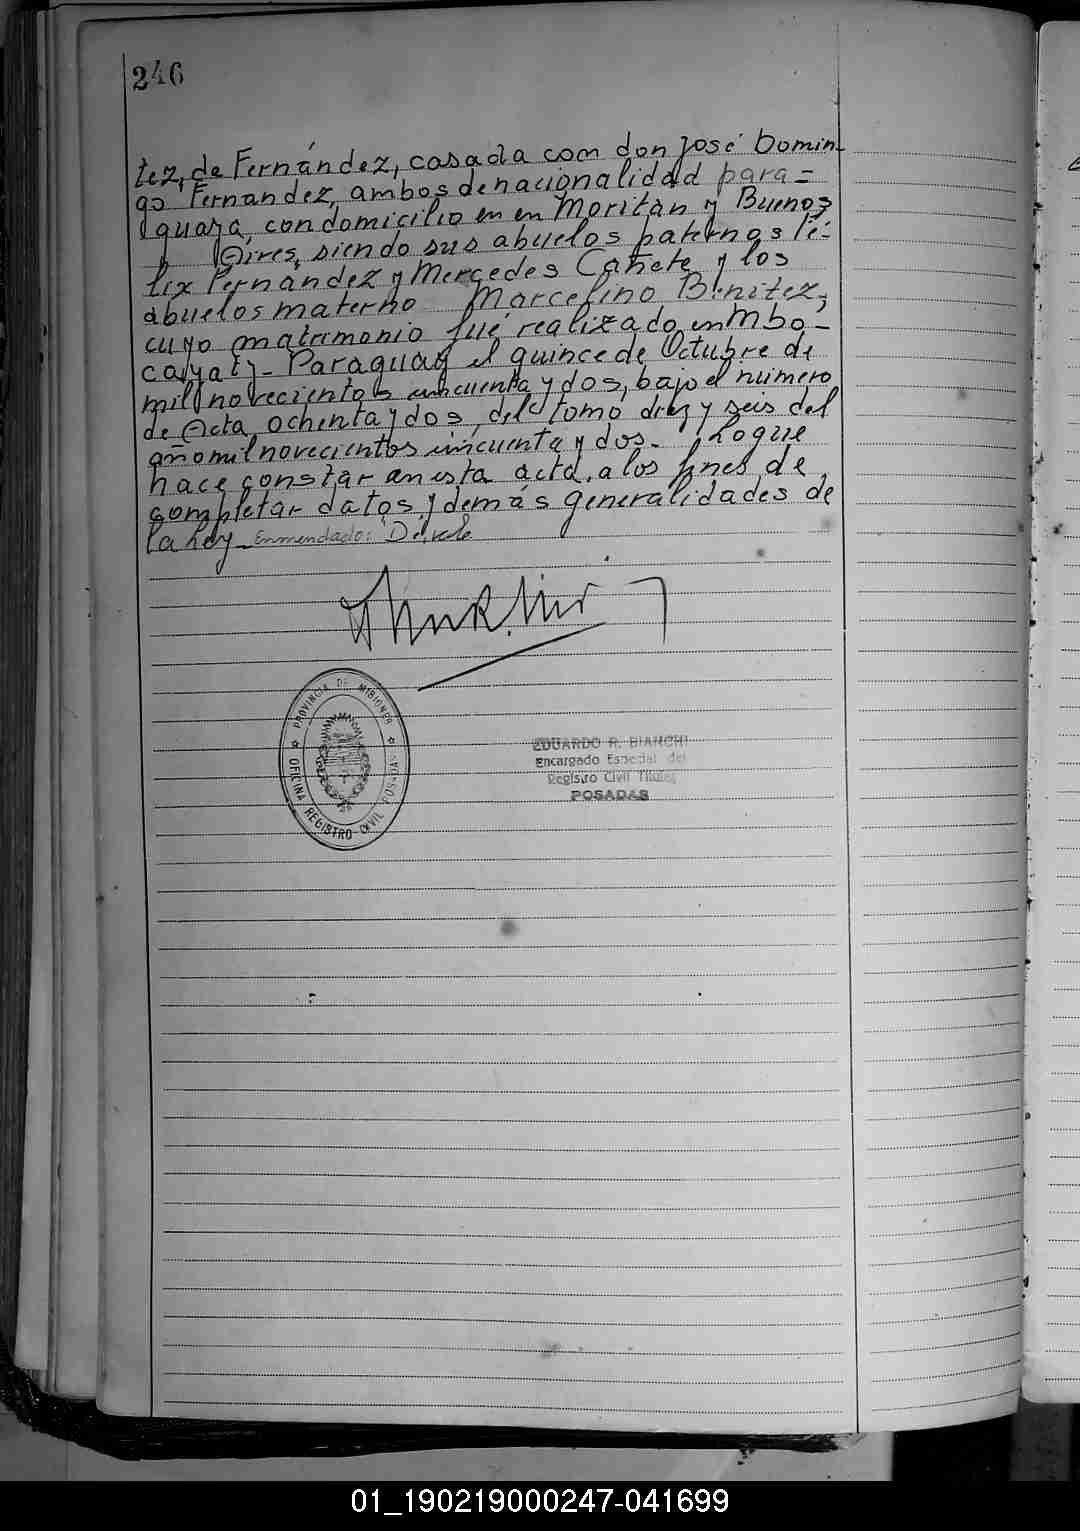 246
tez, de Fernández, casada com don José Domin-
go Fernandez, ambos de nacionalidad para=
guaya, con domicilio en en Moritán y Buenos
Aires, siendo sus abuelos paternos Fé-
lix Fernández y Mercedes Cañete y los
abuelos materno Marcelino Benitez,
cuyo matrimonio fué realizado en Mbo-
cayaty - Paraguay el quince de Octubre de
mil novecientos cincuenta y dos, bajo el número
de Acta ochenta y dos, del tomo diez y seis del
año mil novecientos cincuenta y dos. Lo que
hace constar en esta acta, a los fines de
completar datos y demás generalidades de
la Ley. Enmendado: D. vale
PROVINCIA DE MISIONES
OFICINA REGISTRO CIVIL POSADAS
EDUARDO R. BIANCHI
Encargado Especial del
Registro Civil Titular
POSADAS
01_190219000247-041699